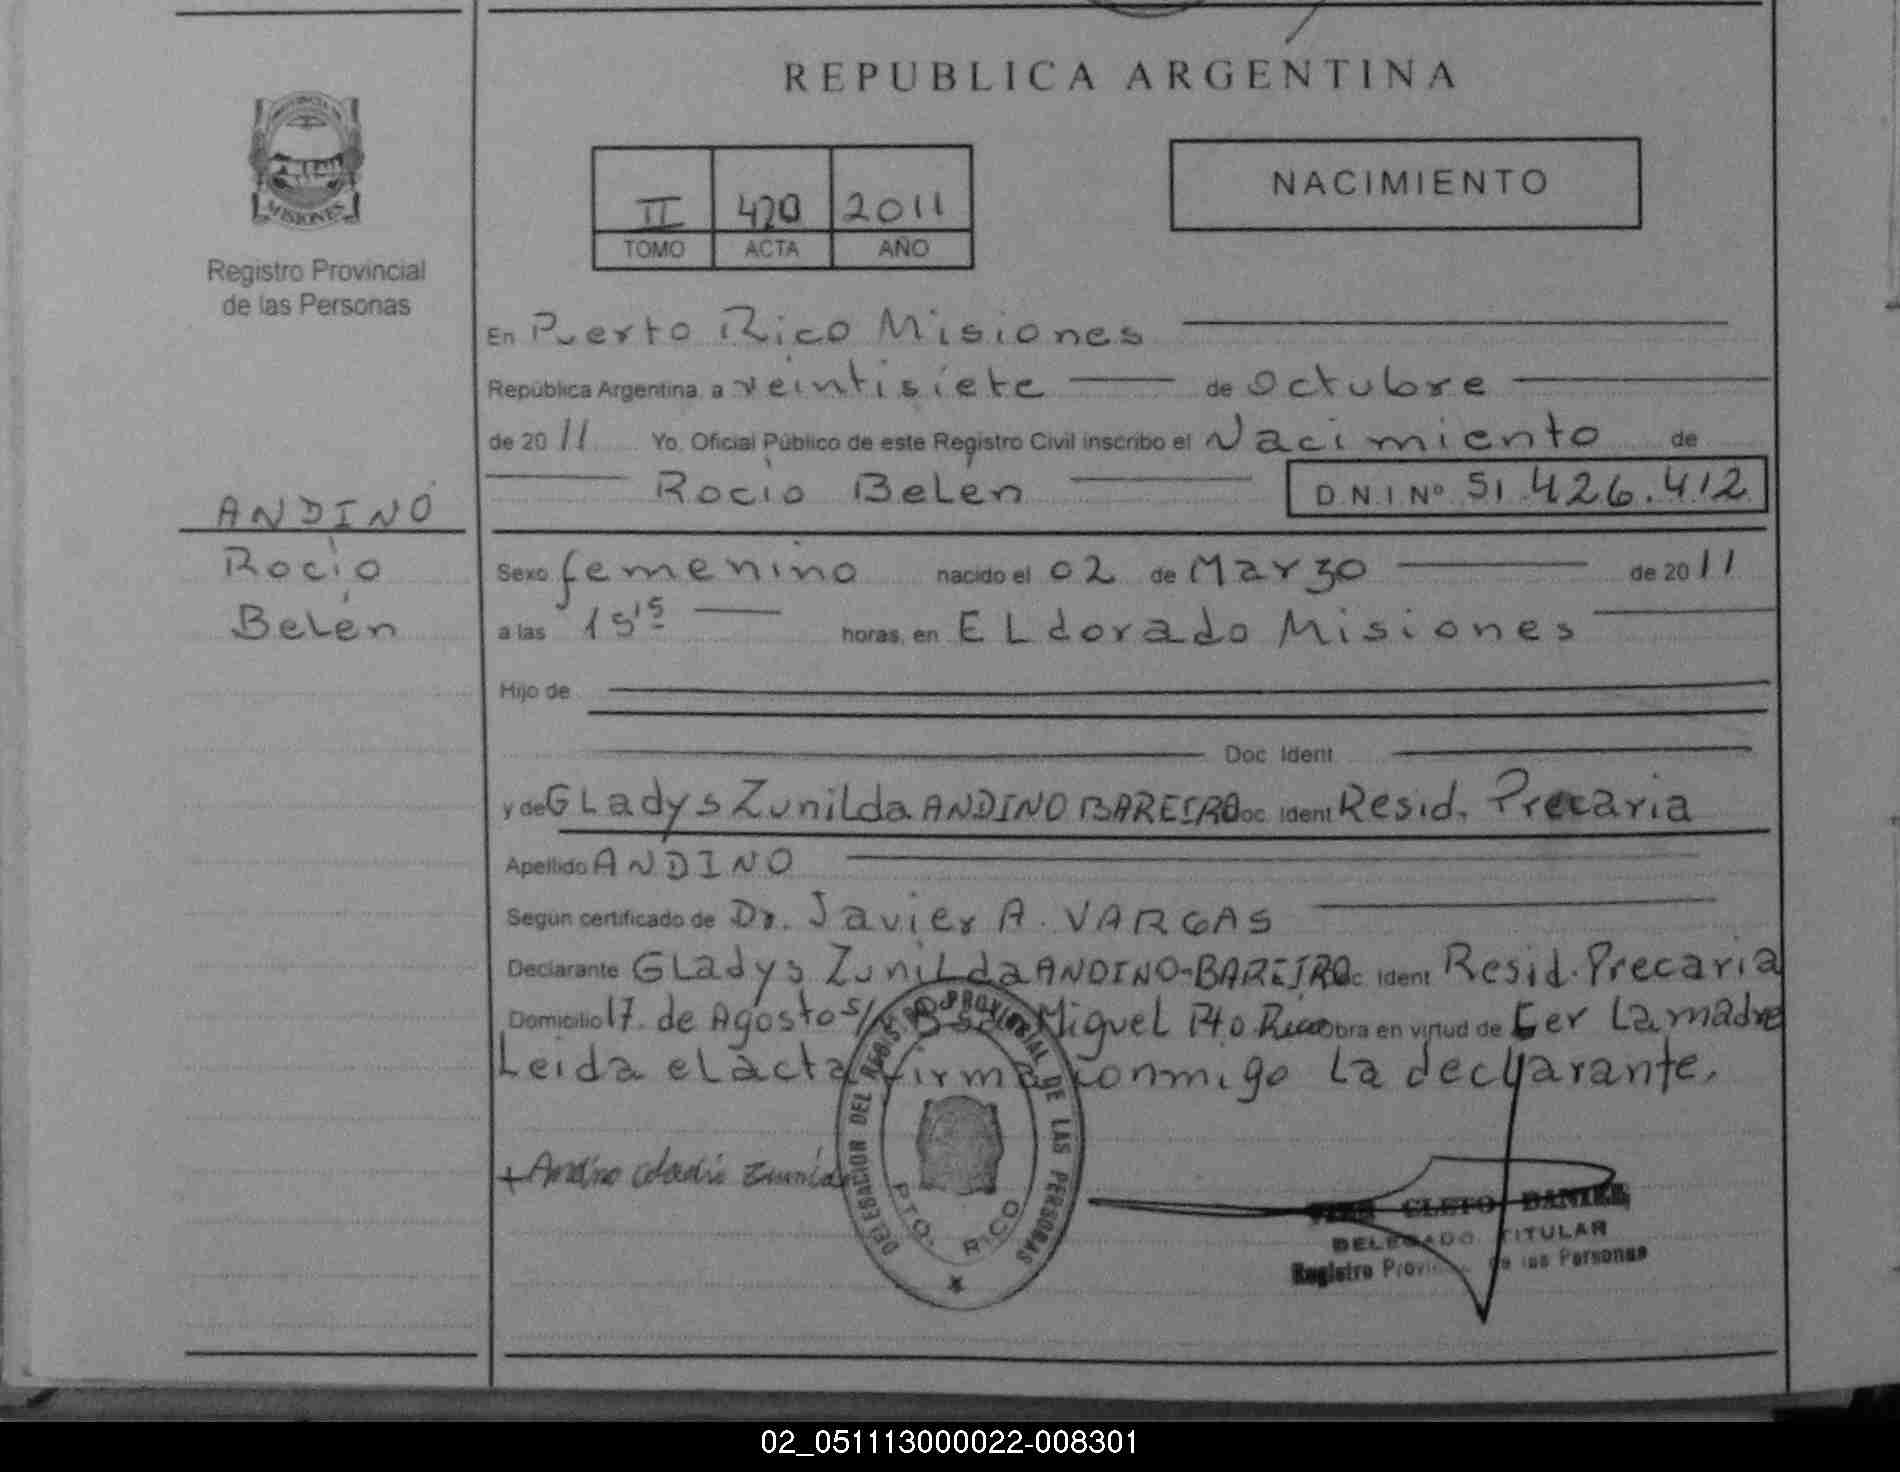 REPUBLICA ARGENTINA
PROVINCIA
MISIONES
Registro Provincial
de las Personas
II 420 2011
TOMO ACTA AÑO
NACIMIENTO
En Puerto Rico Misiones
República Argentina, a veintisiete de Octubre
de 2011 Yo, Oficial Público de este Registro Civil inscribo el Nacimiento de
Rocío Belén D.N.I Nº 51.426.412
ANDINO
Rocío
Belén
Sexo femenino nacido el 02 de Marzo de 2011
a las 15 15 horas, en ELdorado Misiones
Hijo de
Doc. Ident.
y de GLadys Zunilda ANDINO BAREIRO Doc. Ident Resid. Precaria
Apellido ANDINO
Según certificado de Dr. Javier A. VARGAS
Declarante GLadys ZuniLda ANDINO-BAREIRO Doc. Ident Resid. Precaria
Domicilio 17 de Agosto s/ Miguel Pto Rico Obra en virtud de Ser La madre
Leida el acta firma conmigo La declarante.
Andino
DELEGACION DEL REGISTRO PROVINCIAL DE LAS PERSONAS
PTO. RICO
CLETO DANIEL
DELEGADO TITULAR
Registro Provincial de las Personas
02_051113000022-008301